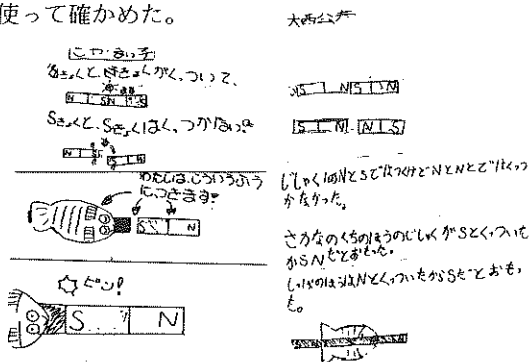 使って確かめた。
にゃ・まっ子
NきょくとSきょくがくっついて、
N SN S
Sきょくと、Sきょくはくっつかない。
わたしは、こういうふう
につきます!
S N
ピン!
S N
S N S N
S N N S
じしゃくはNとSではつくけどNとNとではくっつ
かなかった。
さかなのくちのほうのじしゃくがSとくっついた
からNだとおもった。
しっぽのほうはNとくっついたからSだとおもっ
た。